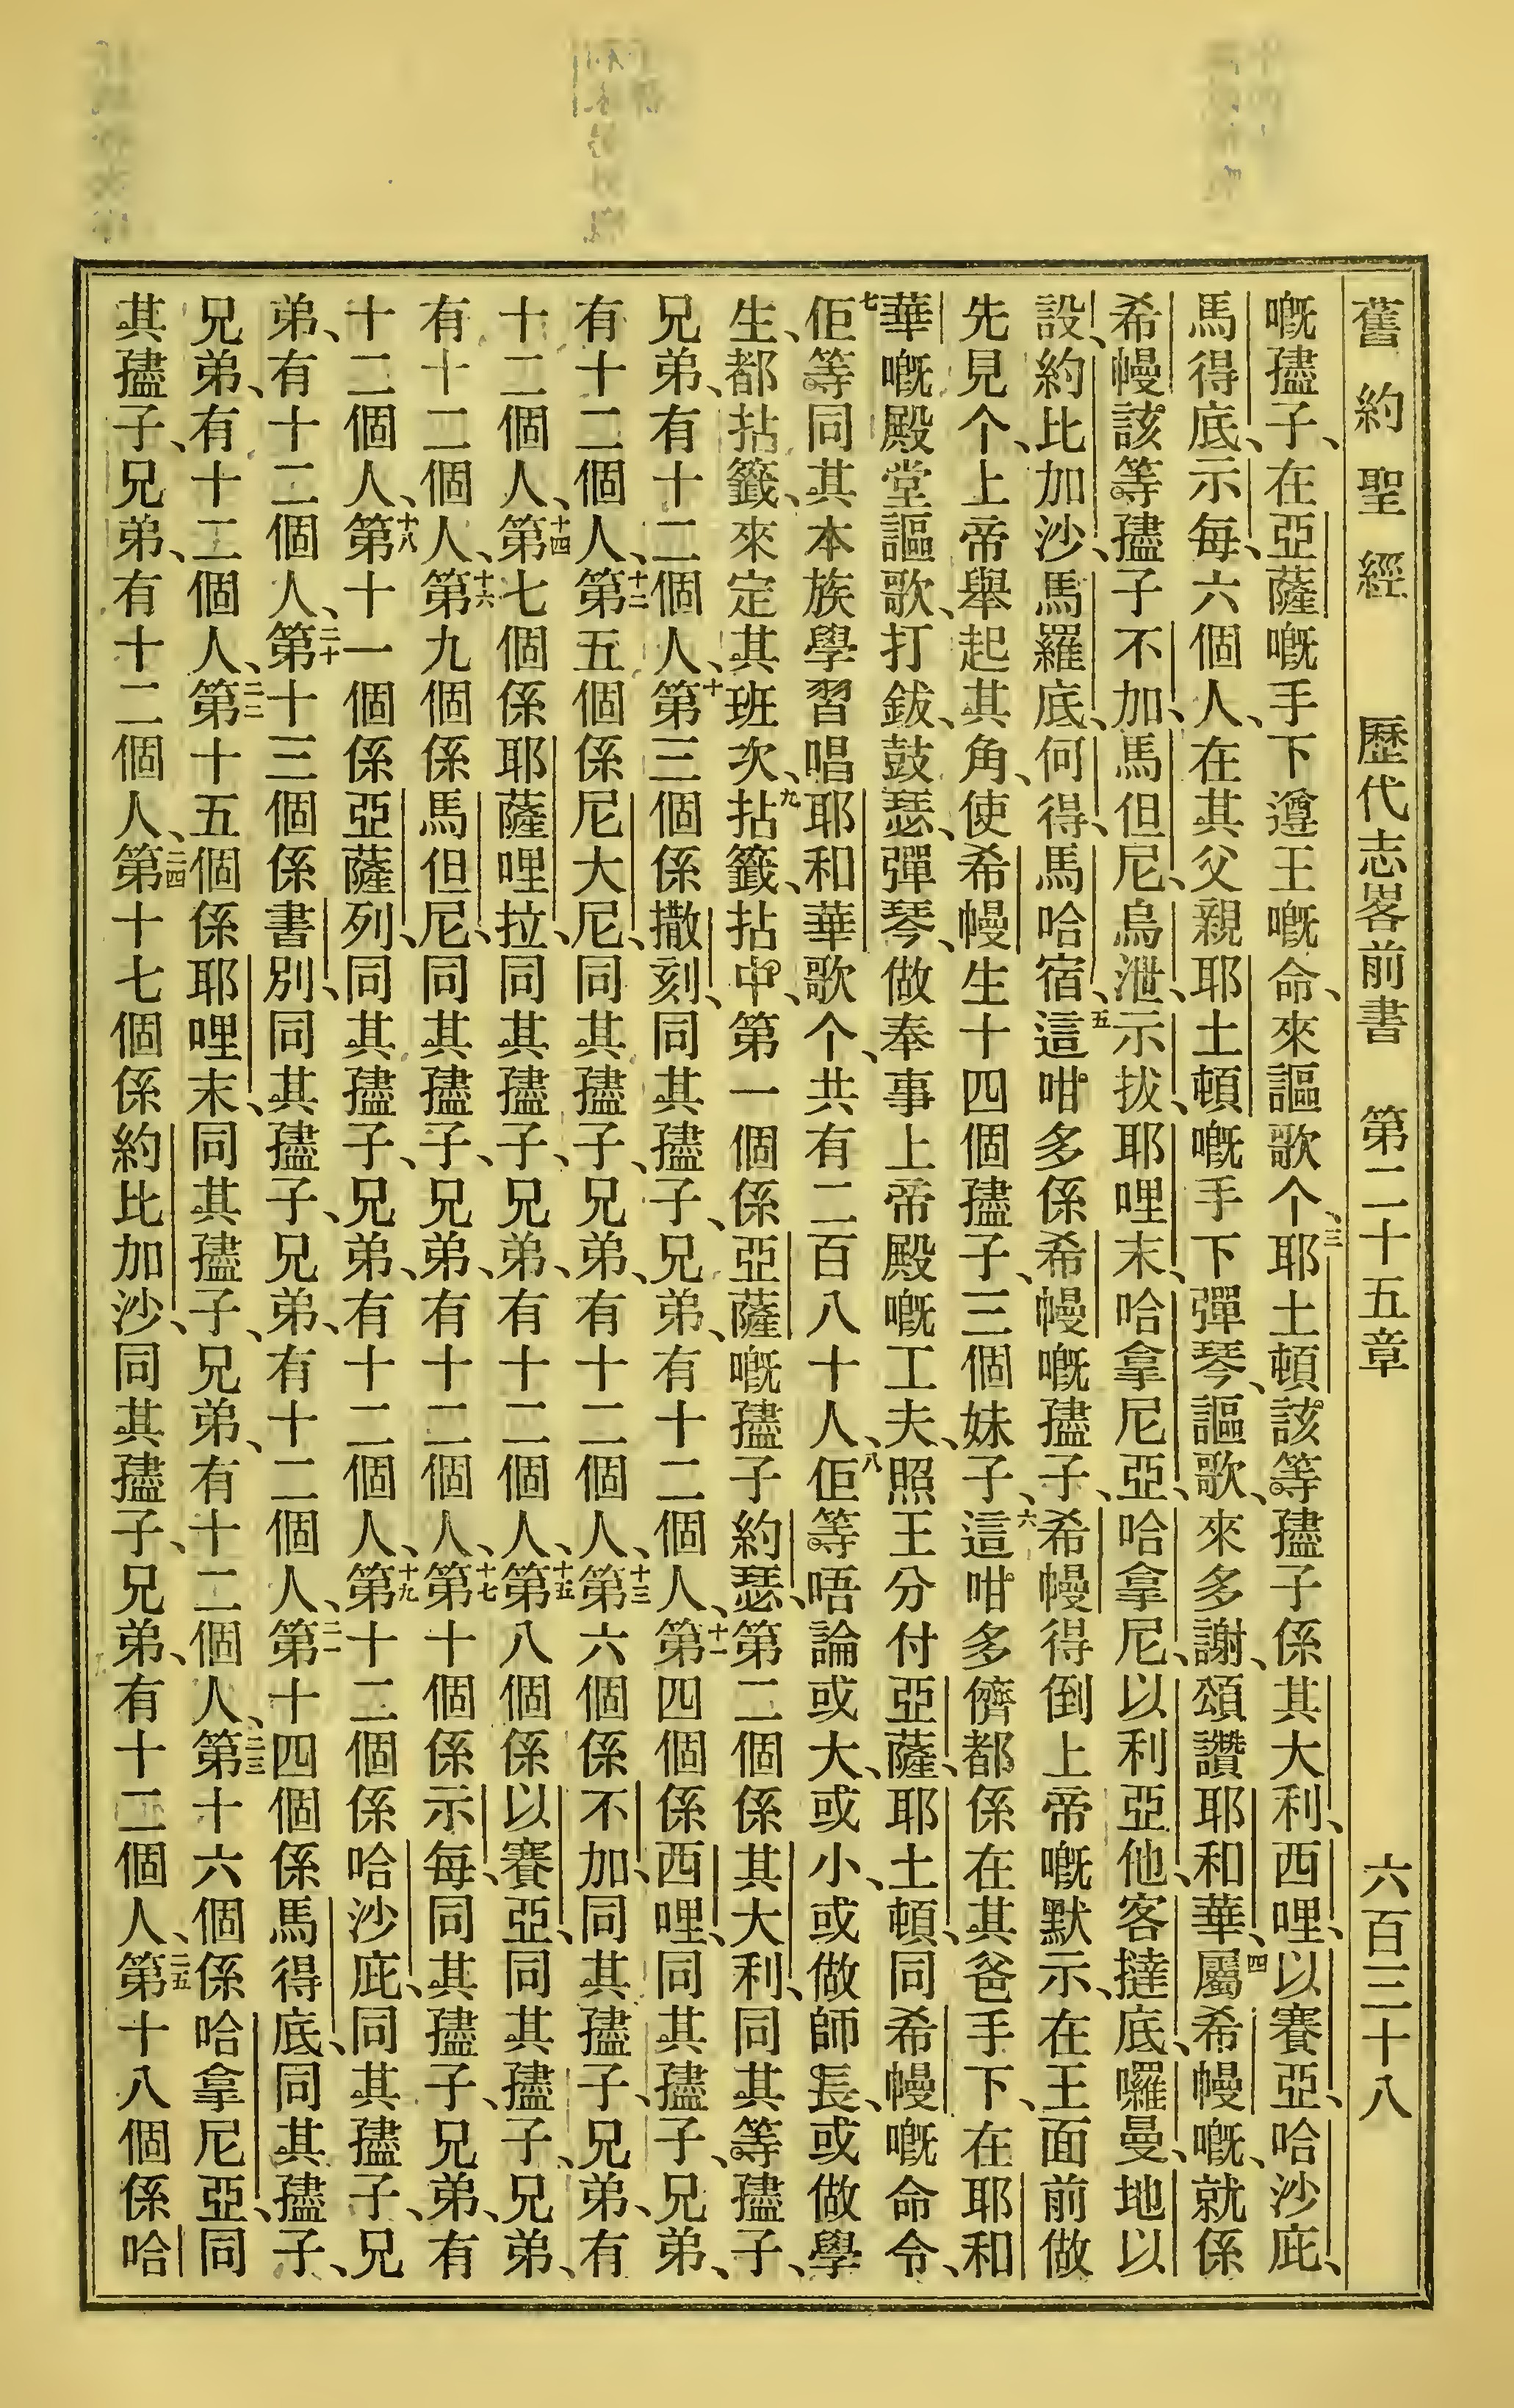 舊約聖經 歷代志畧前書 第二十五章 六百三十八
嘅孻子、在亞薩嘅手下遵王嘅命、來謳歌个、三耶土頓該等孻子係其大利、西哩、以賽亞、哈沙庇、
馬得底、示每、六個人、在其父親耶土頓嘅手下彈琴、謳歌、來多謝、頌讚耶和華、四屬希幔嘅、就係
希幔該等孻子不加、馬但尼、烏泄、示拔、耶哩末、哈拿尼亞、哈拿尼、以利亞他、客撻底、囉曼、地以
設、約比加沙、馬羅底、何得、馬哈宿、五這咁多係希幔嘅孻子、希幔得倒上帝嘅默示、在王面前做
先見个、上帝舉起其角、使希幔生十四個孻子、三個妹子、六這咁多儕都係在其爸手下、在耶和
華嘅殿堂謳歌、打鈸、鼓瑟、彈琴、做奉事上帝殿嘅工夫、照王分付亞薩、耶土頓、同希幔嘅命令、
七佢等同其本族學習唱耶和華歌个、共有二百八十人、八佢等唔論或大、或小、或做師長、或做學
生、都拈籤、來定其班次、九拈籤、拈中、第一個係亞薩嘅孻子約瑟、第二個係其大利、同其等孻子、
兄弟、有十二個人、十第三個係撒刻、同其孻子、兄弟、有十二個人、十一第四個係西哩、同其孻子、兄弟、
有十二個人、十二第五個係尼大尼、同其孻子、兄弟、有十二個人、十三第六個係不加、同其孻子、兄弟、有
十二個人、十四第七個係耶薩哩拉、同其孻子、兄弟、有十二個人、十五第八個係以賽亞、同其孻子、兄弟、
有十二個人、十六第九個係馬但尼、同其孻子、兄弟、有十二個人、十七第十個係示每、同其孻子、兄弟、有
十二個人、十八第十一個係亞薩列、同其孻子、兄弟、有十二個人、十九第十二個係哈沙庇、同其孻子、兄
弟、有十二個人、二十第十三個係書別、同其孻子、兄弟、有十二個人、二一第十四個係馬得底、同其孻子、
兄弟、有十二個人、二二第十五個係耶哩末、同其孻子、兄弟、有十二個人、二三第十六個係哈拿尼亞、同
其孻子、兄弟、有十二個人、二四第十七個係約比加沙、同其孻子、兄弟、有十二個人、二五第十八個係哈